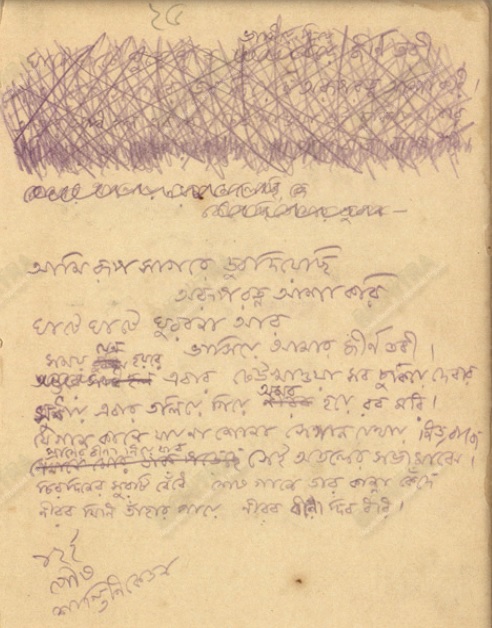 ২৫
জীর্ণ তরী
আমি রূপ সাগরে ডুব দিয়েছি
অরূপ রতন আশা করি
ঘাটে ঘাটে ঘুরবনা আর
ভাসিয়ে আমার জীর্ণ তরী।
সময় যেন হয়রে
এবার ঢেউ খাওয়া সব চুকিয়ে দেবার
এবার তলিয়ে গিয়ে অমর হয়ে রব মরি।
যে গান কানে যায় না শোনা সে গান যেথায় নিত্য বাজে
প্রাণের বীণা নিয়ে যাব
সেই অতলের সভামাঝে।
চিরদিনের সুরটি বেঁধে শেষ গানে তার কান্না কেঁদে
নীরব যিনি তাঁহার পায়ে নীরব বীণা দিব ধরি।
১২ই
পৌষ
শান্তিনিকেতন